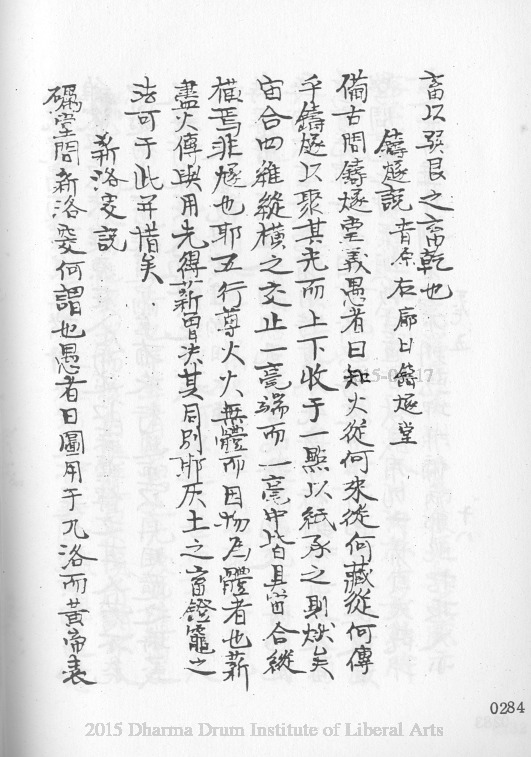 畜以巽艮之畜乾也
鑄燧說 青原右廊曰鑄燧堂
備古問鑄燧堂義愚者曰知火從何來從何藏從何傳
乎鑄燧以聚其光而上下收于一點以紙承之則燃矣
宙合四維縱橫之交止一毫端而一毫中皆具宙合縱
橫焉非燧也耶五行尊火火無體而因物為體者也薪
盡火傳與用先得薪曾決其同別耶灰土之畜鐙竈之
法可于此并惜矣
薪洛變說
礪堂問新洛變何謂也愚者曰圖用于九洛而黃帝表
0284
2015 Dharma Drum Institute of Liberal Arts